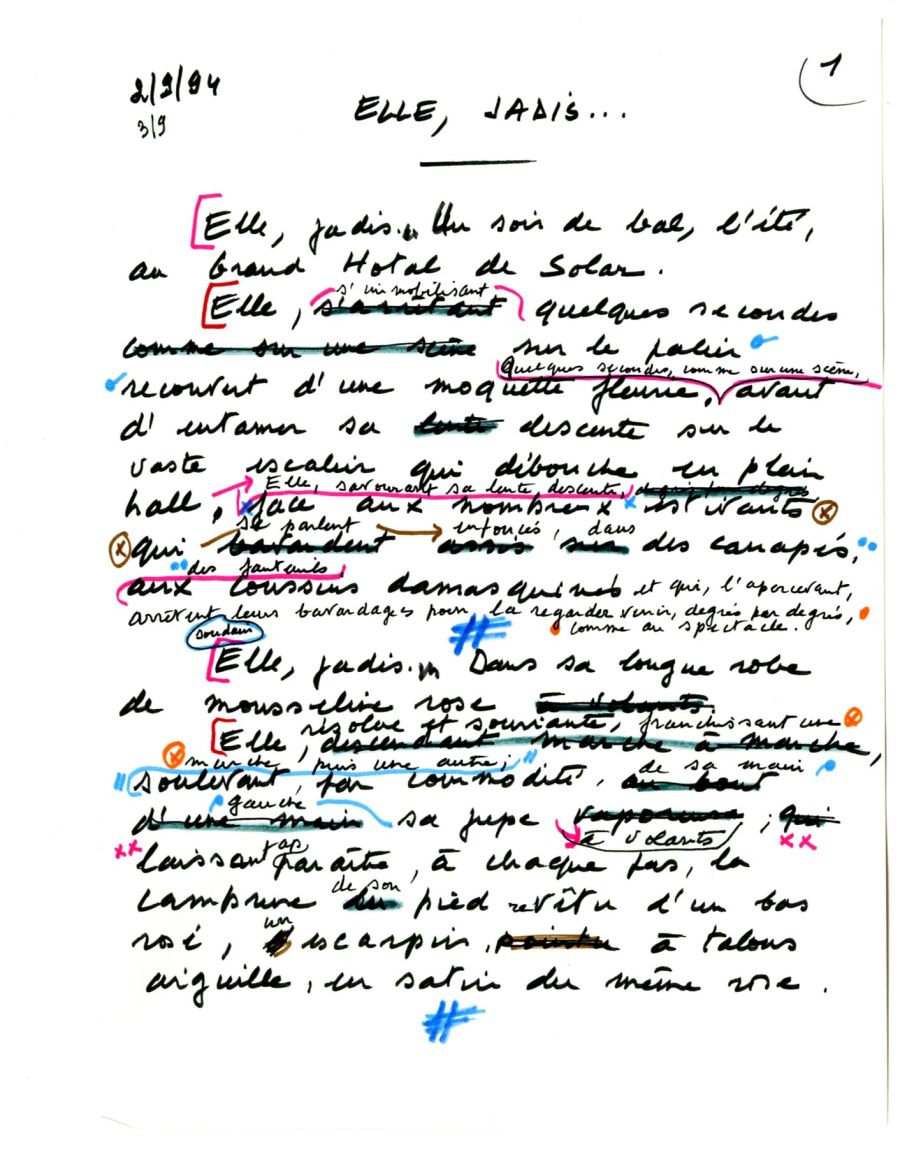 2/9/94
3/9
1
ELLE, JADIS...
Elle, jadis... Un soir de bal, l'été,
au Grand Hotal de Solar.
s'immobilisant
Elle, s'arrêtant quelques secondes
comme sur une scène sur le palier
quelques secondes, comme sur une scène,
recouvert d'une moquette fleurie, avant
d'entamer sa lente descente sur le
vaste escalier qui débouche en plein
Elle, savourant sa lente descente, degrés par degrés
hall, face aux nombreux estivants
se parlent enfoncés, dans
qui bavardent assis sur des canapés,
des fauteuils
aux coussins damasquinés et qui, l'apercevant,
arrêtent leurs bavardages pour la regarder venir, degrés par degrés,
comme au spectacle.
soudain
Elle, jadis... Dans sa longue robe
de mousseline rose à volants.
résolue et souriante, franchissant une
Elle, descendant marche à marche,
marche puis une autre;
soulevant, par commodité, au bout
de sa main
gauche
d'une main sa jupe vaporeuse, qui
à volants
laissant apparaître, à chaque pas, la
de son
cambrure du pied revêtu d'un bas
un
rosé, escarpin pointu à talons
aiguille, en satin du même rose.